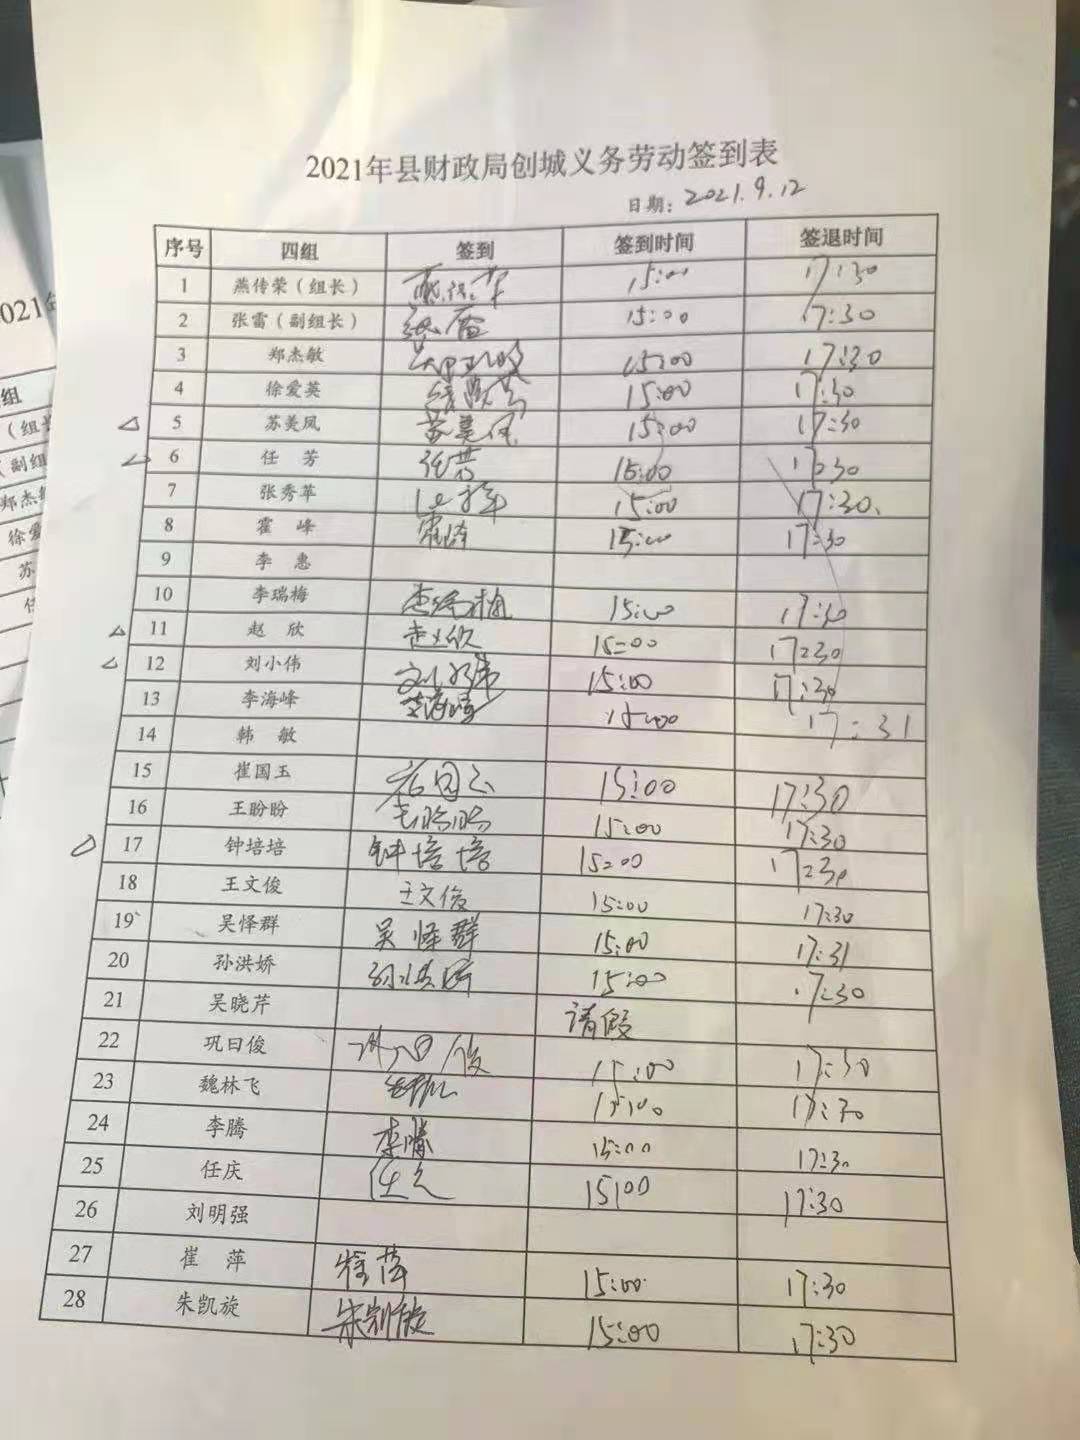 2021年县财政局创城义务劳动签到表
日期: 2021.9.12
序号 四组 签到 签到时间 签退时间
1 燕传荣（组长） 燕传荣 15:00 17:30
2 张雷（副组长） 张雷 15:00 17:30
3 郑杰敏 15:00 17:30
4 徐爱英 徐爱英 15:00 17:30
5 苏美凤 苏美凤 15:00 17:30
6 任 芳 任芳 15:00 17:30
7 张秀苹 15:00 17:30
8 霍 峰 霍峰 15:00 17:30
9 李 惠
10 李瑞梅 李瑞梅 15:00 17:30
11 赵 欣 赵欣 15:00 17:30
12 刘小伟 刘小伟 15:00 17:30
13 李海峰 李海峰 15:00 17:31
14 韩 敏
15 崔国玉 崔国玉 15:00 17:30
16 王盼盼 王盼盼 15:00 17:30
17 钟培培 钟培培 15:00 17:30
18 王文俊 王文俊 15:00 17:30
19 吴怿群 吴怿群 15:00 17:31
20 孙洪娇 孙洪娇 15:00 17:30
21 吴晓芹 请假
22 巩曰俊 巩曰俊 15:00 17:30
23 魏林飞 15:00 17:30
24 李腾 李腾 15:00 17:30
25 任庆 任庆 15:00 17:30
26 刘明强
27 崔 萍 崔萍 15:00 17:30
28 朱凯旋 朱凯旋 15:00 17:30
2021年
组
（组长
（副组
郑杰敏
徐爱
苏
任